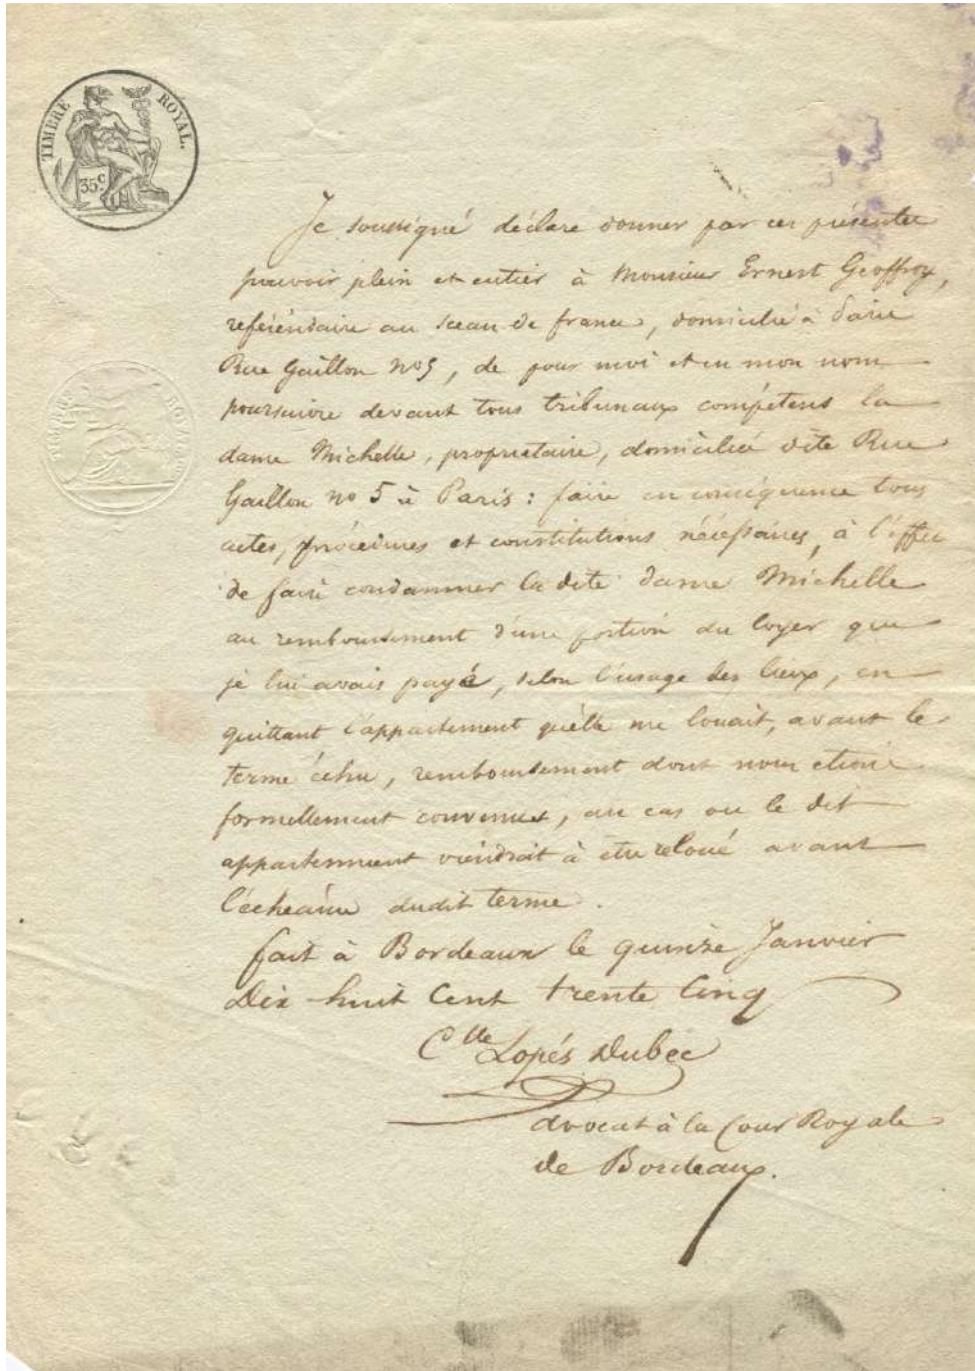 TIMBRE ROYAL.
35c
Je soussigné déclare donner par ces présentes
pouvoir plein et entier à Monsieur Ernest Geoffroy,
référendaire au sceau de france, domicilié à Paris
Rue Gaillon no 5, de pour moi et en mon nom
poursuivre devant tous tribunaux compétens la
dame Michelle, propriétaire, domiciliée dite Rue
Gaillon no 5 à Paris : faire en conséquence tous
actes, procédures et constitutions nécessaires, à l'effet
de faire condamner la dite dame Michelle
au remboursement d'une portion du loyer que
je lui avais payé, selon l'usage des lieux, en
quittant l'appartement qu'elle me louait, avant le
terme échu, remboursement dont nous étions
formellement convenus, au cas ou le dit
appartement viendrait à être reloué avant
l'écheance dudit terme.
fait à Bordeaux le quinze Janvier
Dix huit Cent trente Cinq
Clle Lopés Dubec
avocat à la Cour Royale
de Bordeaux.